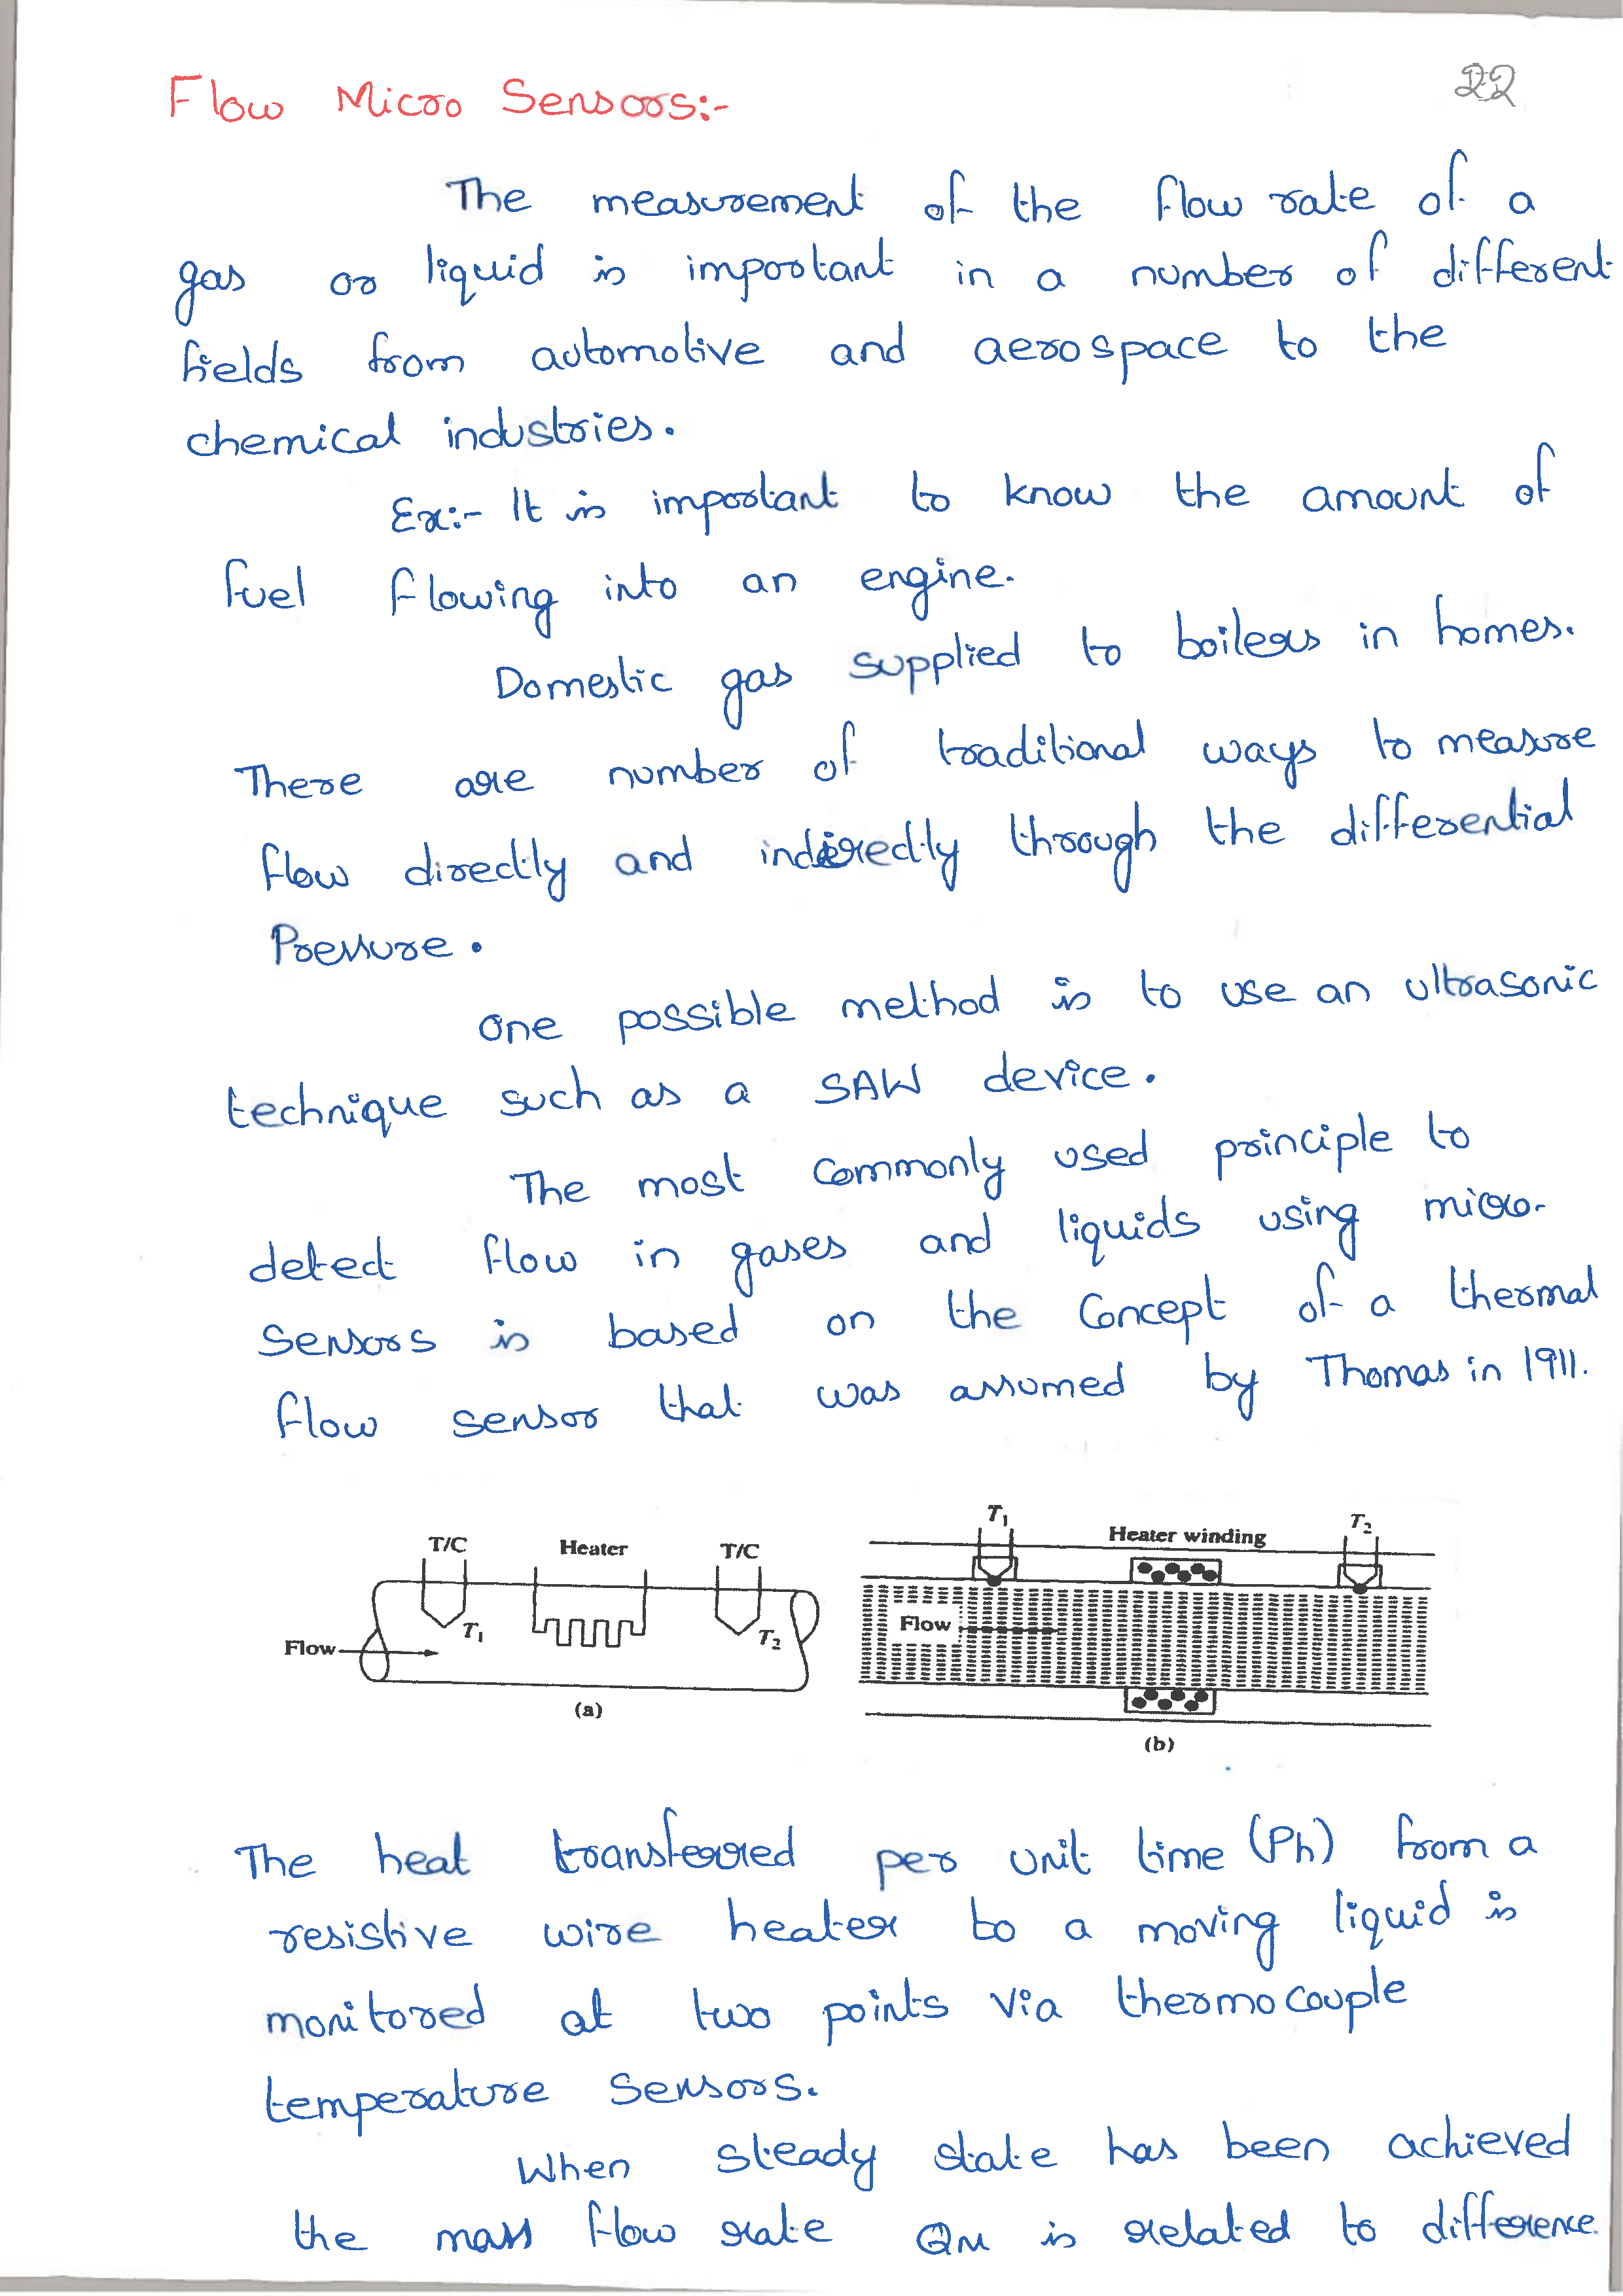 Flow Micro Sensors:-
22
The measurement of the flow rate of a
gas or liquid is important in a number of different
fields from automotive and aerospace to the
chemical industries.
Ex:- It is important to know the amount of
fuel flowing into an engine.
Domestic gas supplied to boilers in homes.
There are number of traditional ways to measure
flow directly and indirectly through the differential
Pressure.
One possible method is to use an ultrasonic
technique such as a SAW device.
The most commonly used principle to
detect flow in gases and liquids using micro-
sensors is based on the concept of a thermal
flow sensor that was assumed by Thomas in 1911.
T/C Heater T/C
T1 T2
Flow
(a)
T1 Heater winding T2
Flow
(b)
The heat transferred per unit time (Ph) from a
resistive wire heater to a moving liquid is
monitored at two points via thermocouple
temperature sensors.
When steady state has been achieved
the mass flow rate QM is related to difference